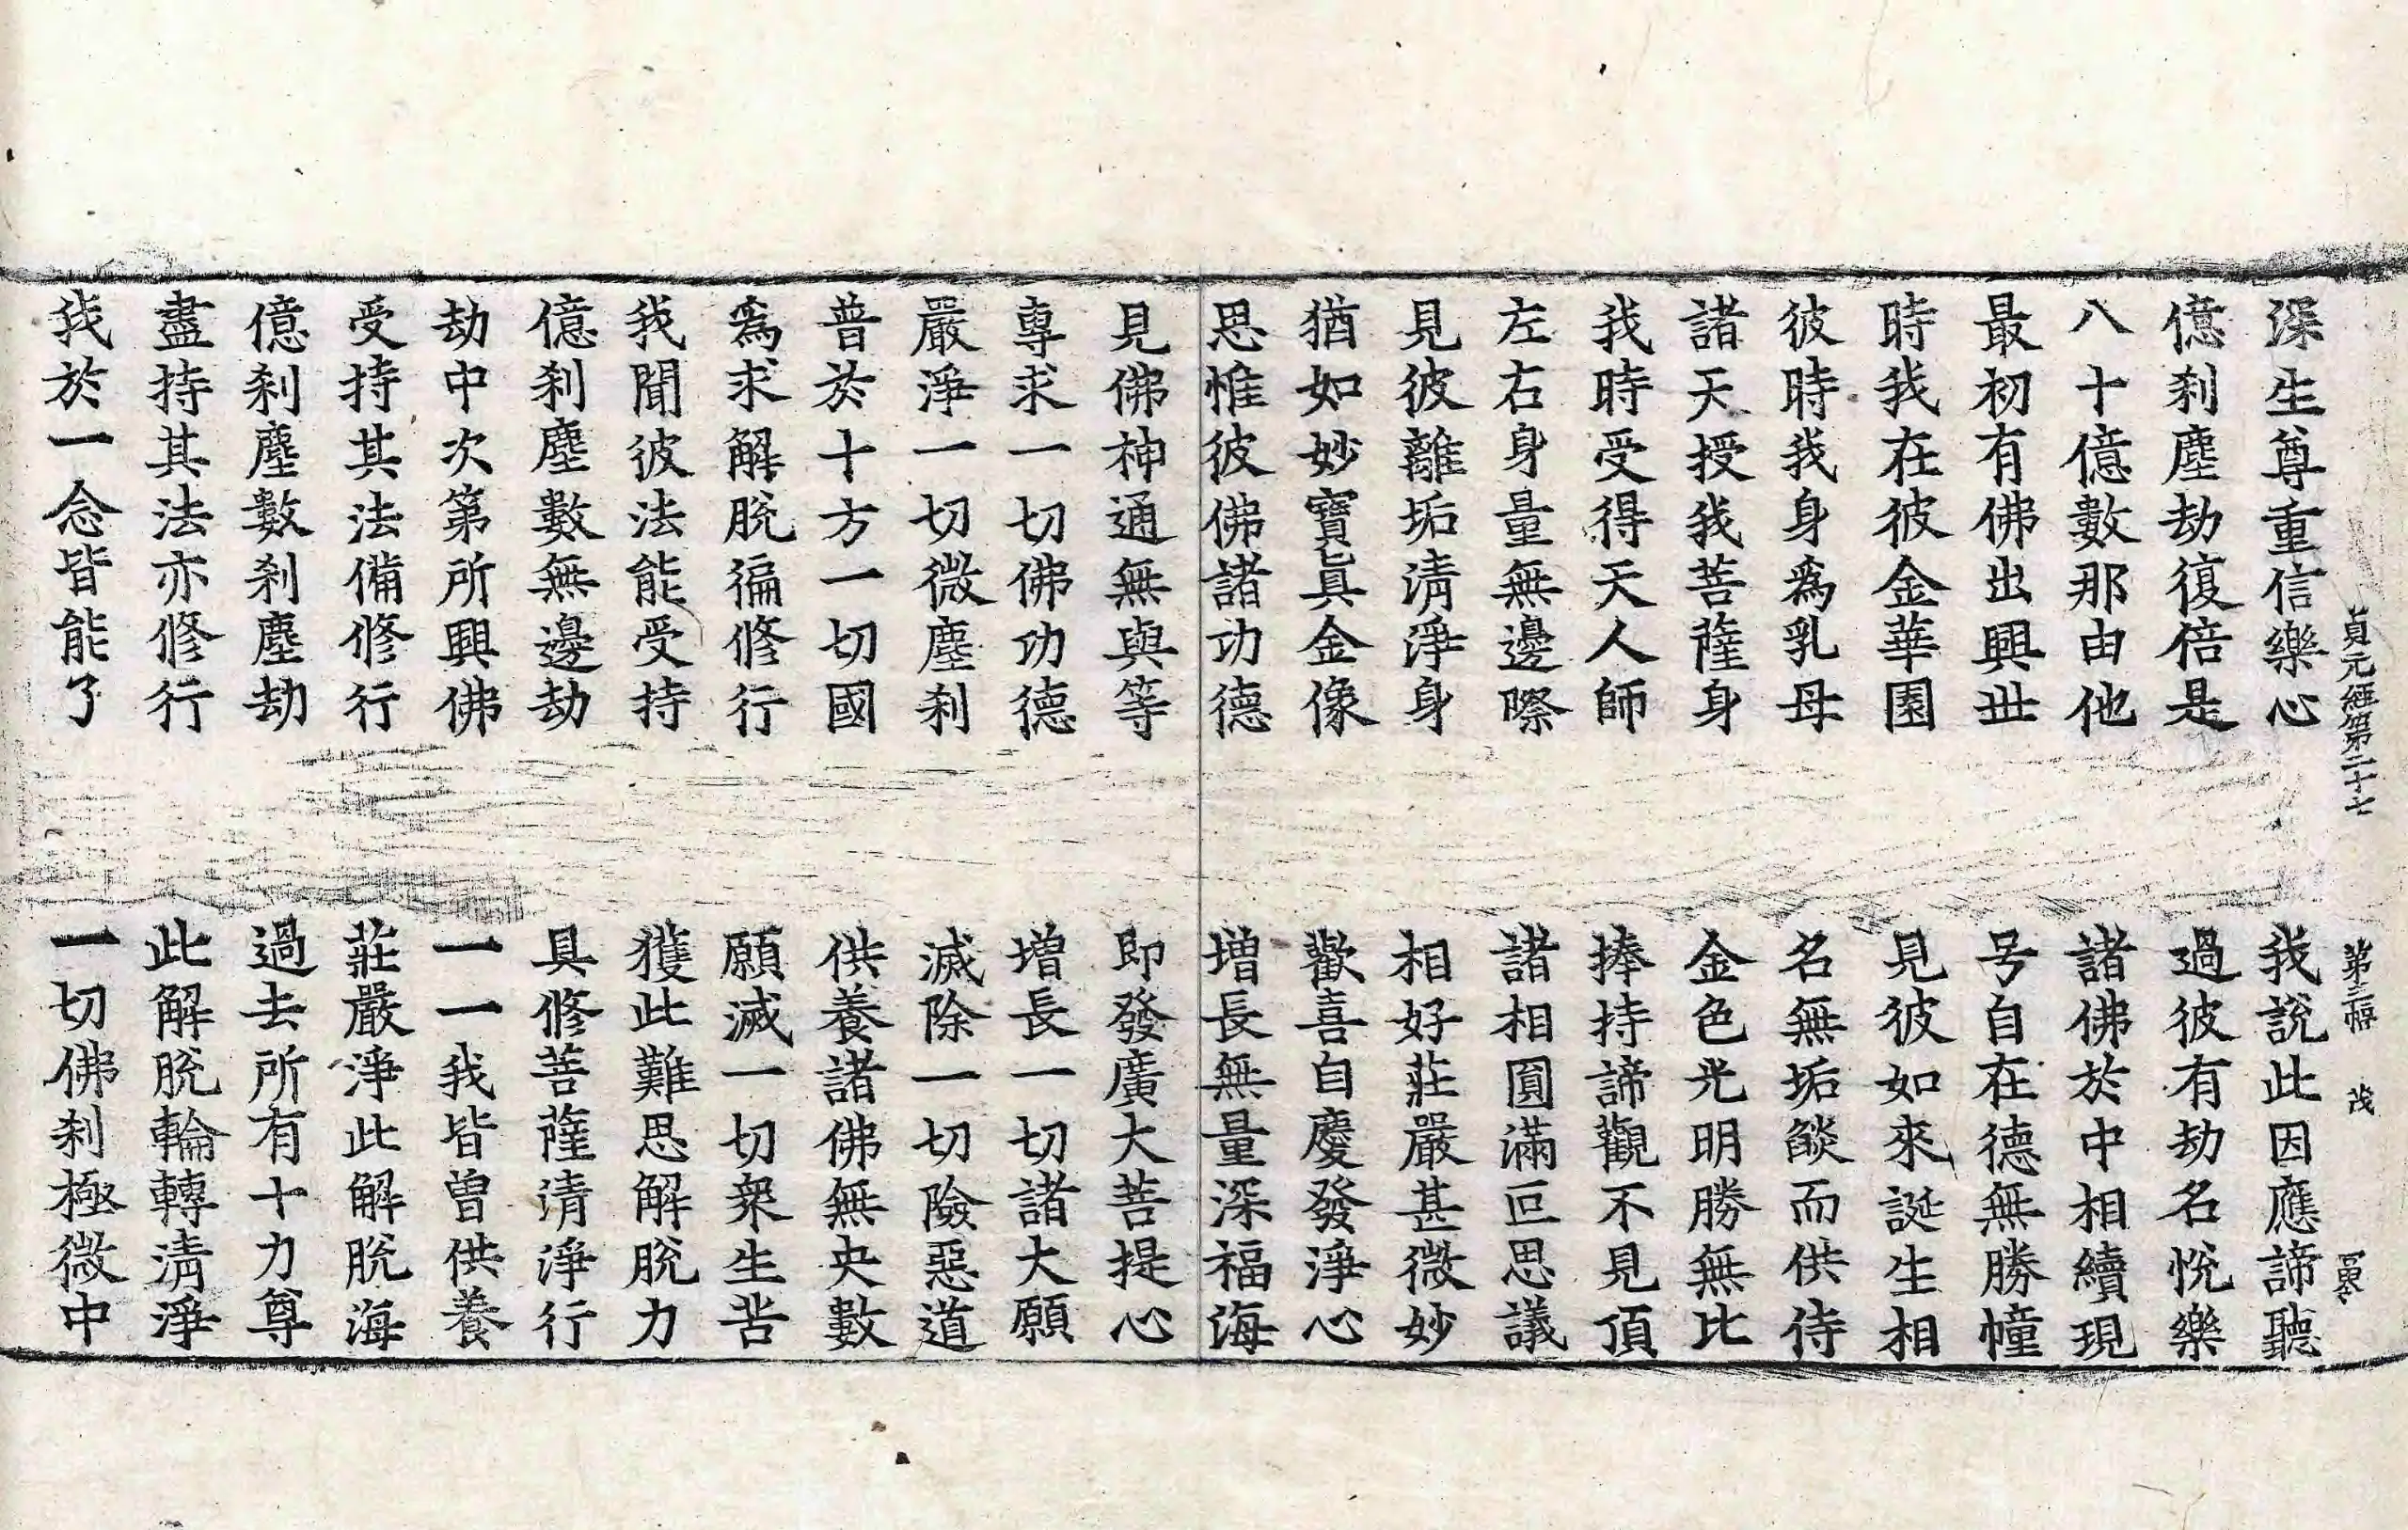 貞元經第二十七 第三幅 茂
深生尊重信樂心 我說此因應諦聽
億剎塵劫復倍是 過彼有劫名悅樂
八十億數那由他 諸佛於中相續現
最初有佛出興世 号自在德無勝幢
時我在彼金華園 見彼如來誕生相
彼時我身爲乳母 名無垢燄而供侍
諸天授我菩薩身 金色光明勝無比
我時受得天人師 捧持諦觀不見頂
左右身量無邊際 諸相圓滿叵思議
見彼離垢清淨身 相好莊嚴甚微妙
猶如妙寶眞金像 歡喜自慶發淨心
思惟彼佛諸功德 增長無量深福海
見佛神通無與等 即發廣大菩提心
專求一切佛功德 增長一切諸大願
嚴淨一切微塵剎 滅除一切險惡道
普於十方一切國 供養諸佛無央數
爲求解脫徧修行 願滅一切衆生苦
我聞彼法能受持 獲此難思解脫力
億剎塵數無邊劫 具修菩薩清淨行
劫中次第所興佛 一一我皆曾供養
受持其法備修行 莊嚴淨此解脫海
億剎塵數剎塵劫 過去所有十力尊
盡持其法亦修行 此解脫輪轉清淨
我於一念皆能了 一切佛剎極微中